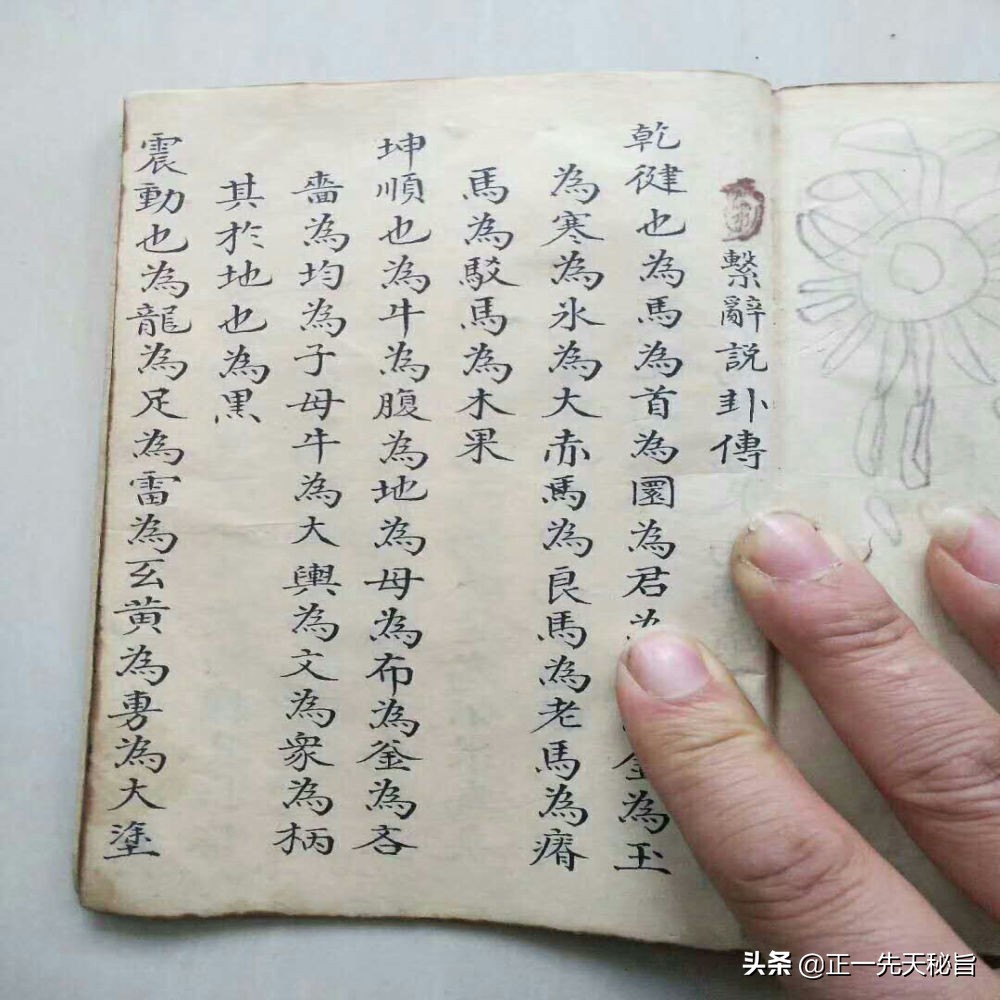 繫辭說卦傳
乾健也為馬為首為圜為君為金為玉
為寒為氷為大赤馬為良馬為老馬為瘠
馬為駁馬為木果
坤順也為牛為腹為地為母為布為釜為吝
嗇為均為子母牛為大輿為文為衆為柄
其於地也為黑
震動也為龍為足為雷為玄黃為旉為大塗
头条 @正一先天秘旨